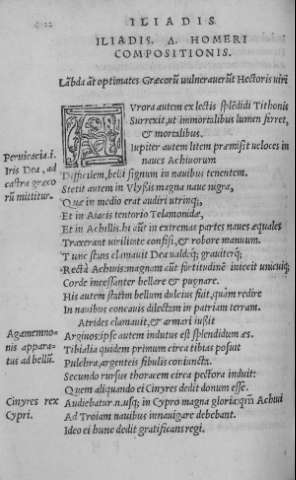 ILIADIS.
ILIADIS. Λ. HOMERI
COMPOSITIONIS.
Lãbda ãt optimates Græcorũ uulnerauerũt Hectoris uiri
Vrora autem ex lectis splẽdidi Tithonis
Surrexit, ut immortalibus lumen ferret,
& mortalibus.
Iupiter autem litem præmisit ueloces in
naues Achiuorum
Peruicacia.i.
Iris Dea, ad
castra græco
rũ mittitur.
Difficilem, belli signum in manibus tenentem.
Stetit autem in Vlyssis magna naue nigra,
Quæ in medio erat audiri utrinq;,
Et in Aiacis tentorio Telamonidæ,
Et in Achillis. hi aũt in extremas partes naues æquales
Traxerant uirilitate confisi, & robore manuum.
Tunc stans clamauit Dea ualdeq; grauiterq;
Recta Achiuis: magnam aũt fortitudinẽ iniecit unicuiq;
Corde incessanter bellare & pugnare.
His autem statim bellum dulcius fiuit, quàm redire
In nauibus concauis dilectam in patriam terram.
Atrides clamauit, & armari iussit
Agamemno-
nis appara-
tus ad bellũ.
Argiuos: ipse autem indutus est splendidum æs.
Tibialia quidem primum circa tibias posuit
Pulchra, argenteis fibulis coniuncta.
Secundo rursus thoracem circa pectora induit:
Quem aliquando ei Cinyres dedit donum esse.
Cinyres rex
Cypri.
Audiebatur.n.usq; in Cypro magna gloria: qm̃ Achiui
Ad Troiam nauibus innauigare debebant.
Ideo ei hunc dedit gratificans regi.